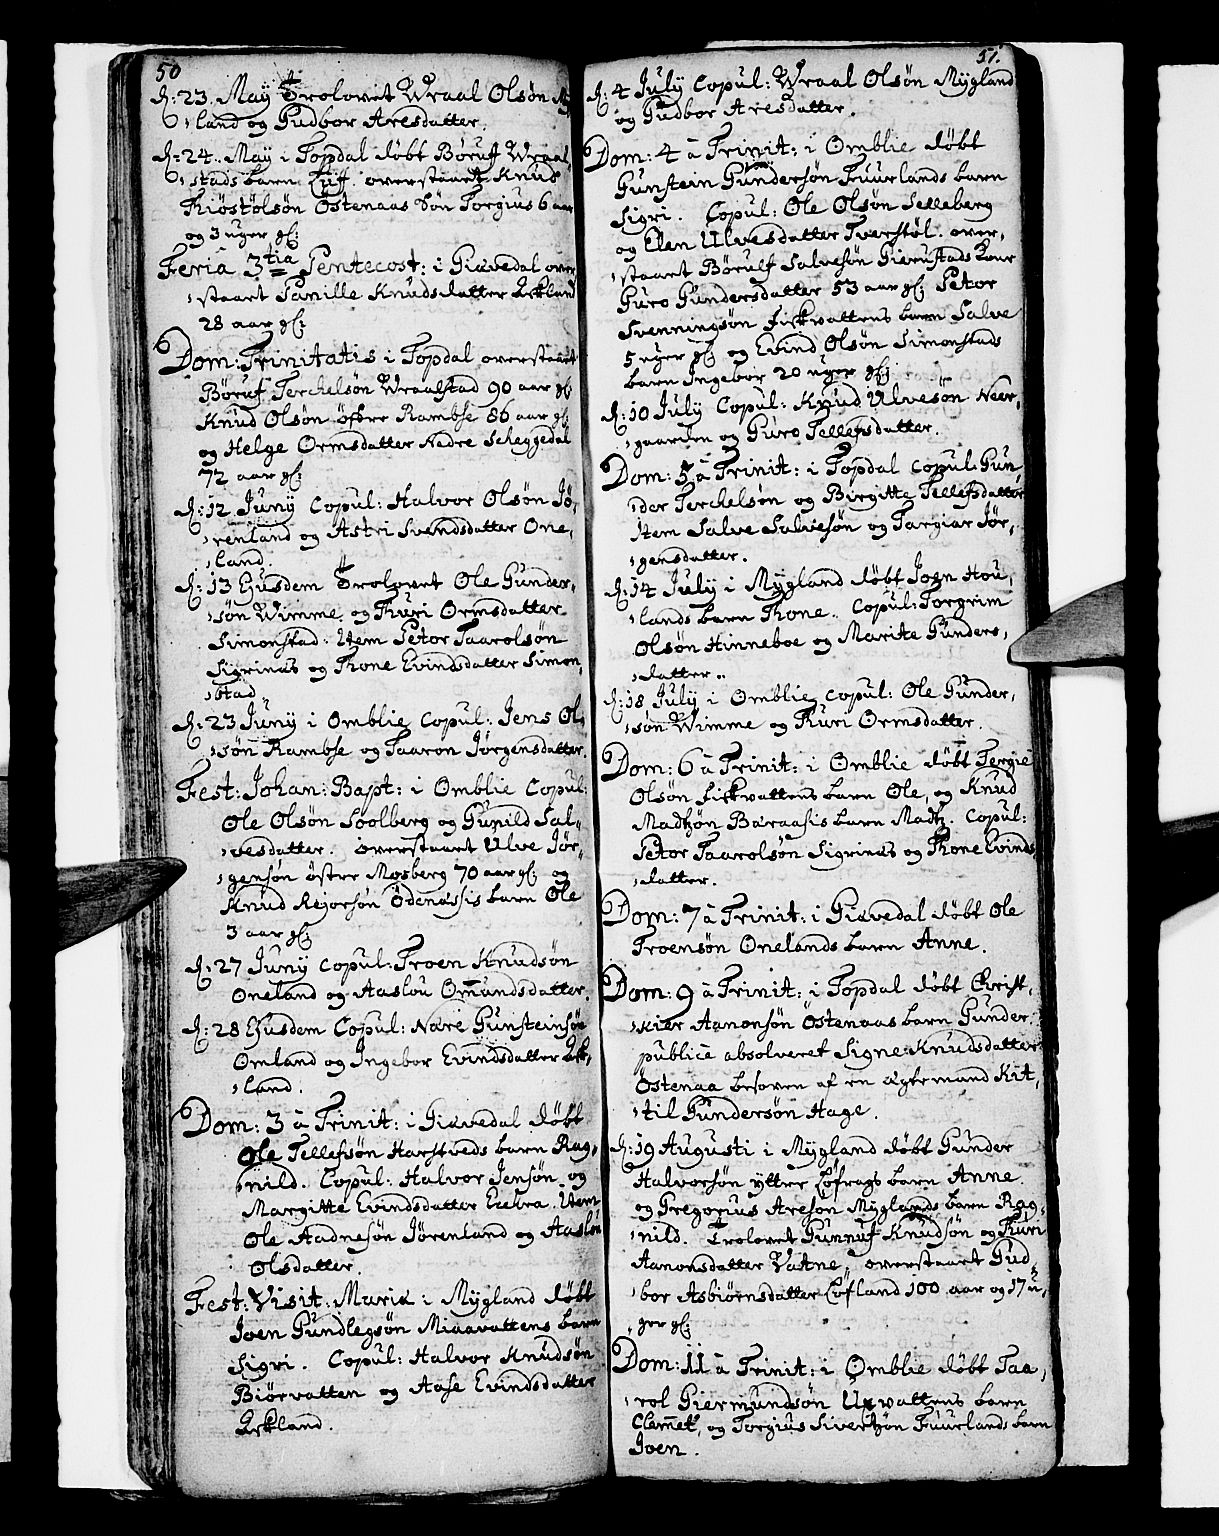 50
d: 23. May Trolovet Wraal Olsøn My,
land og Gudbor Aresdatter.
d: 24. May i Topdal døbt Børuf Wraal,
stads barn Liif. overstaart Knud
Kiøstølsøn Østenaas Søn Torgius 6 aar
og 3 uger gl:
Feria 3tia Pentecost: i Giøvedal over
staart Pernille Knudsdatter Eskland
28 aar gl:
Dom: Trinitatis i Topdal overstaart
Børuf Terchelsøn Wraalstad 90 aar gl:
Knud Olsøn øfre Rambse 86 aar gl:
og Helge Ormsdatter Nedre Scheggedal
72 aar gl:
d: 12 Juny Copul: Halvor Olsøn Jø,
renland og Astri Svendsdatter One,
land.
d: 13 Ejusdem Trolovet Ole Gunder,
søn Wimme og Thuri Ormsdatter
Simonstad. Item Petor Taarolsøn
Sigrinæs og Thone Evindsdatter Simon,
stad
d: 23 Juny i Omblie Copul: Jens Ol,
søn Rambse og Taaron Jørgensdatter.
Fest: Johan: Bapt: i Omblie Copul:
Ole Olsøn Soolberg og Gunild Sal,
vesdatter. overstaart Ulve Jør,
gensøn østre Mosberg 70 aar gl: og
Knud Rejorsøn Ødenæssis barn Ole
3 aar gl:
d: 27 Juny Copul: Troen Knudsøn
Oneland og Aaslou Omundsdatter.
d: 28 Ejusdem Copul: Nare Gunsteinsøn
Omland og Ingebor Evindsdatter Esk,
land.
Dom: 3 à Trinit: i Giøvedal døbt
Ole Tellefsøn Harstveds barn Rag,
nild. Copul: Halvor Jensøn og
Margitte Evindsdatter Ezehra. Item
Ole Aadnesøn Jørenland og Aaslou
Olsdatter.
Fest: Visit: Mariæ i Mygland døbt
Joen Gundlegsøn Miaavattens barn
Sigri. Copul: Halvor Knudsøn
Biørvatten og Aase Evindsdatter
Eskland.
51.
d: 4 July Copul: Wraal Olsøn Mygland
og Gudbor Aresdatter.
Dom: 4 à Trinit: i Omblie døbt
Gunstein Gundersøn Fuurlands barn
Sigri. Copul: Ole Olsøn Selleberg
og Elen Ulvesdatter Tverstøl. over,
staart Børulf Salvesøn Gierustads Kone
Guro Gundersdatter 53 aar gl: Petor
Svenningsøn Fiskvattens barn Salve
5 uger gl: og Evind Olsøn Simonstads
barn Ingebor 20 uger gl:
d: 10 July Copul: Knud Ulvesøn Neer,
gaarden og Guro Tellefsdatter.
Dom: 5 à Trinit: i Topdal copul: Gun
der Terchelsøn og Birgitte Tellefsdatter
Item Salve Salvesøn og Targiær Jør,
gensdatter.
d: 14 July i Mygland døbt Jogn Hou,
lands barn Thone. Copul: Torgrim
Olsøn Hinneboe og Marite Gunders,
datter..
d: 18 July i Omblie copul: Ole Gunder,
søn Wimme og Thuri Ormsdatter.
Dom: 6 à Trinit: i Omblie døbt Tergie
Olsøn Fiskvattens barn Ole, og Knud
Madtzøn Baraasis barn Madtz. Copul:
Petor Taarolsøn Sigrinæs og Thone Evinds
datter.
Dom: 7 à Trinit: i Giøvedal døbt Ole
Troensøn Onelands barn Anne.
Dom: 9 à Trinit: i Topdal døbt Christ,
kier Aanonsøn Østenaas barn Gunder
publice absolveret Signe Knudsdatter
Østenaa besoven af en ægtemand Kit,
til Gundersøn Hage.
d: 19 Augusti i Mygland døbt Gunder
Halvorsøn yttre Løfrags barn Anne
og Gregorius Aresøn Myglands barn Rag,
nild. Trolovet Gunnuf Knudsøn og Thuri
Aanonsdatter Vatne, overstaart Gud,
bor Asbiørnsdatter Løfland 100 aar og 17 u,
ger gl:
Dom: 11 à Trinit: i Omblie døbt Taa,
rol Giermundsøn Uxvattens barn
Clemet, og Torgius Sivertzøn Fuurlands barn
Joen.